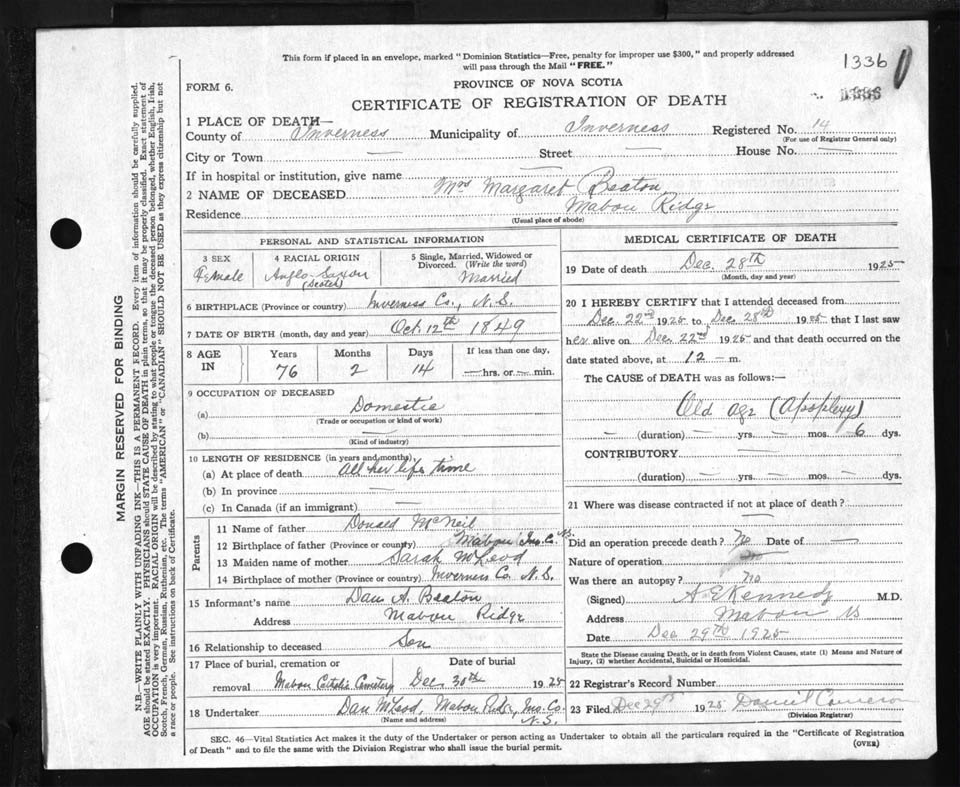 This form if placed in an envelope, marked "Dominion Statistics—Free, penalty for improper use $300," and properly addressed
will pass through the Mail "FREE."
1336
1336
FORM 6.
PROVINCE OF NOVA SCOTIA
CERTIFICATE OF REGISTRATION OF DEATH
1 PLACE OF DEATH—
County of Inverness Municipality of Inverness Registered No. 14
(For use of Registrar General only)
City or Town — Street — House No. —
If in hospital or institution, give name —
2 NAME OF DECEASED Mrs Margaret Beaton
Residence Mabou Ridge
(Usual place of abode)
PERSONAL AND STATISTICAL INFORMATION
3 SEX
Female
4 RACIAL ORIGIN
Anglo-Saxon
(Scotch)
5 Single, Married, Widowed or
Divorced. (Write the word)
Married
6 BIRTHPLACE (Province or country) Inverness Co., N.S.
7 DATE OF BIRTH (month, day and year) Oct. 12th 1849
8 AGE IN
Years Months Days If less than one day,
76 2 14 — hrs. or — min.
9 OCCUPATION OF DECEASED
(a) Domestic
(Trade or occupation or kind of work)
(b) —
(Kind of industry)
10 LENGTH OF RESIDENCE (in years and months)
(a) At place of death All her life time
(b) In province —
(c) In Canada (if an immigrant) —
Parents
11 Name of father Donald McNeil
12 Birthplace of father (Province or country) Mabou Inv. Co. N.S.
13 Maiden name of mother Sarah McLeod
14 Birthplace of mother (Province or country) Inverness Co. N.S.
15 Informant's name Dan A. Beaton
Address Mabou Ridge
16 Relationship to deceased Son
17 Place of burial, cremation or Date of burial
removal Mabou Catholic Cemetery Dec. 30th 1925
18 Undertaker Dan McLeod, Mabou Ridge, Inv. Co.
N.S.
(Name and address)
MEDICAL CERTIFICATE OF DEATH
19 Date of death Dec. 28th 1925
(Month, day and year)
20 I HEREBY CERTIFY that I attended deceased from
Dec. 22nd 1925 to Dec 28th 1925 that I last saw
her alive on Dec. 22nd 1925 and that death occurred on the
date stated above, at 12 — m.
The CAUSE OF DEATH was as follows:—
Old age (Apoplexy)
— (duration) — yrs. — mos. 6 dys.
CONTRIBUTORY —
(duration) — yrs. — mos. — dys.
21 Where was disease contracted if not at place of death? —
Did an operation precede death? No Date of —
Nature of operation
Was there an autopsy? No
(Signed) A E Kennedy M.D.
Address Mabou NS
Date Dec 29th 1925
State the Disease causing Death, or in death from Violent Causes, state (1) Means and Nature of
Injury, (2) whether Accidental, Suicidal or Homicidal.
22 Registrar's Record Number
23 Filed Dec 29th 1925 Daniel Cameron
(Division Registrar)
SEC. 46—Vital Statistics Act makes it the duty of the Undertaker or person acting as Undertaker to obtain all the particulars required in the "Certificate of Registration
of Death" and to file the same with the Division Registrar who shall issue the burial permit. (OVER)
MARGIN RESERVED FOR BINDING
N.B.—WRITE PLAINLY WITH UNFADING INK—THIS IS A PERMANENT RECORD. Every item of information should be carefully supplied.
AGE should be stated EXACTLY. PHYSICIANS should STATE CAUSE OF DEATH in plain terms, so that it may be properly classified. Exact statement of
OCCUPATION is very important. RACIAL ORIGIN will be described by stating to what people or tongue the deceased person belonged, whether English, Irish,
Scotch, French, German, Russian, Ruthenian, etc. The terms "AMERICAN" or "CANADIAN" SHOULD NOT BE USED as they express citizenship but not
a race or people. See instructions on back of Certificate.